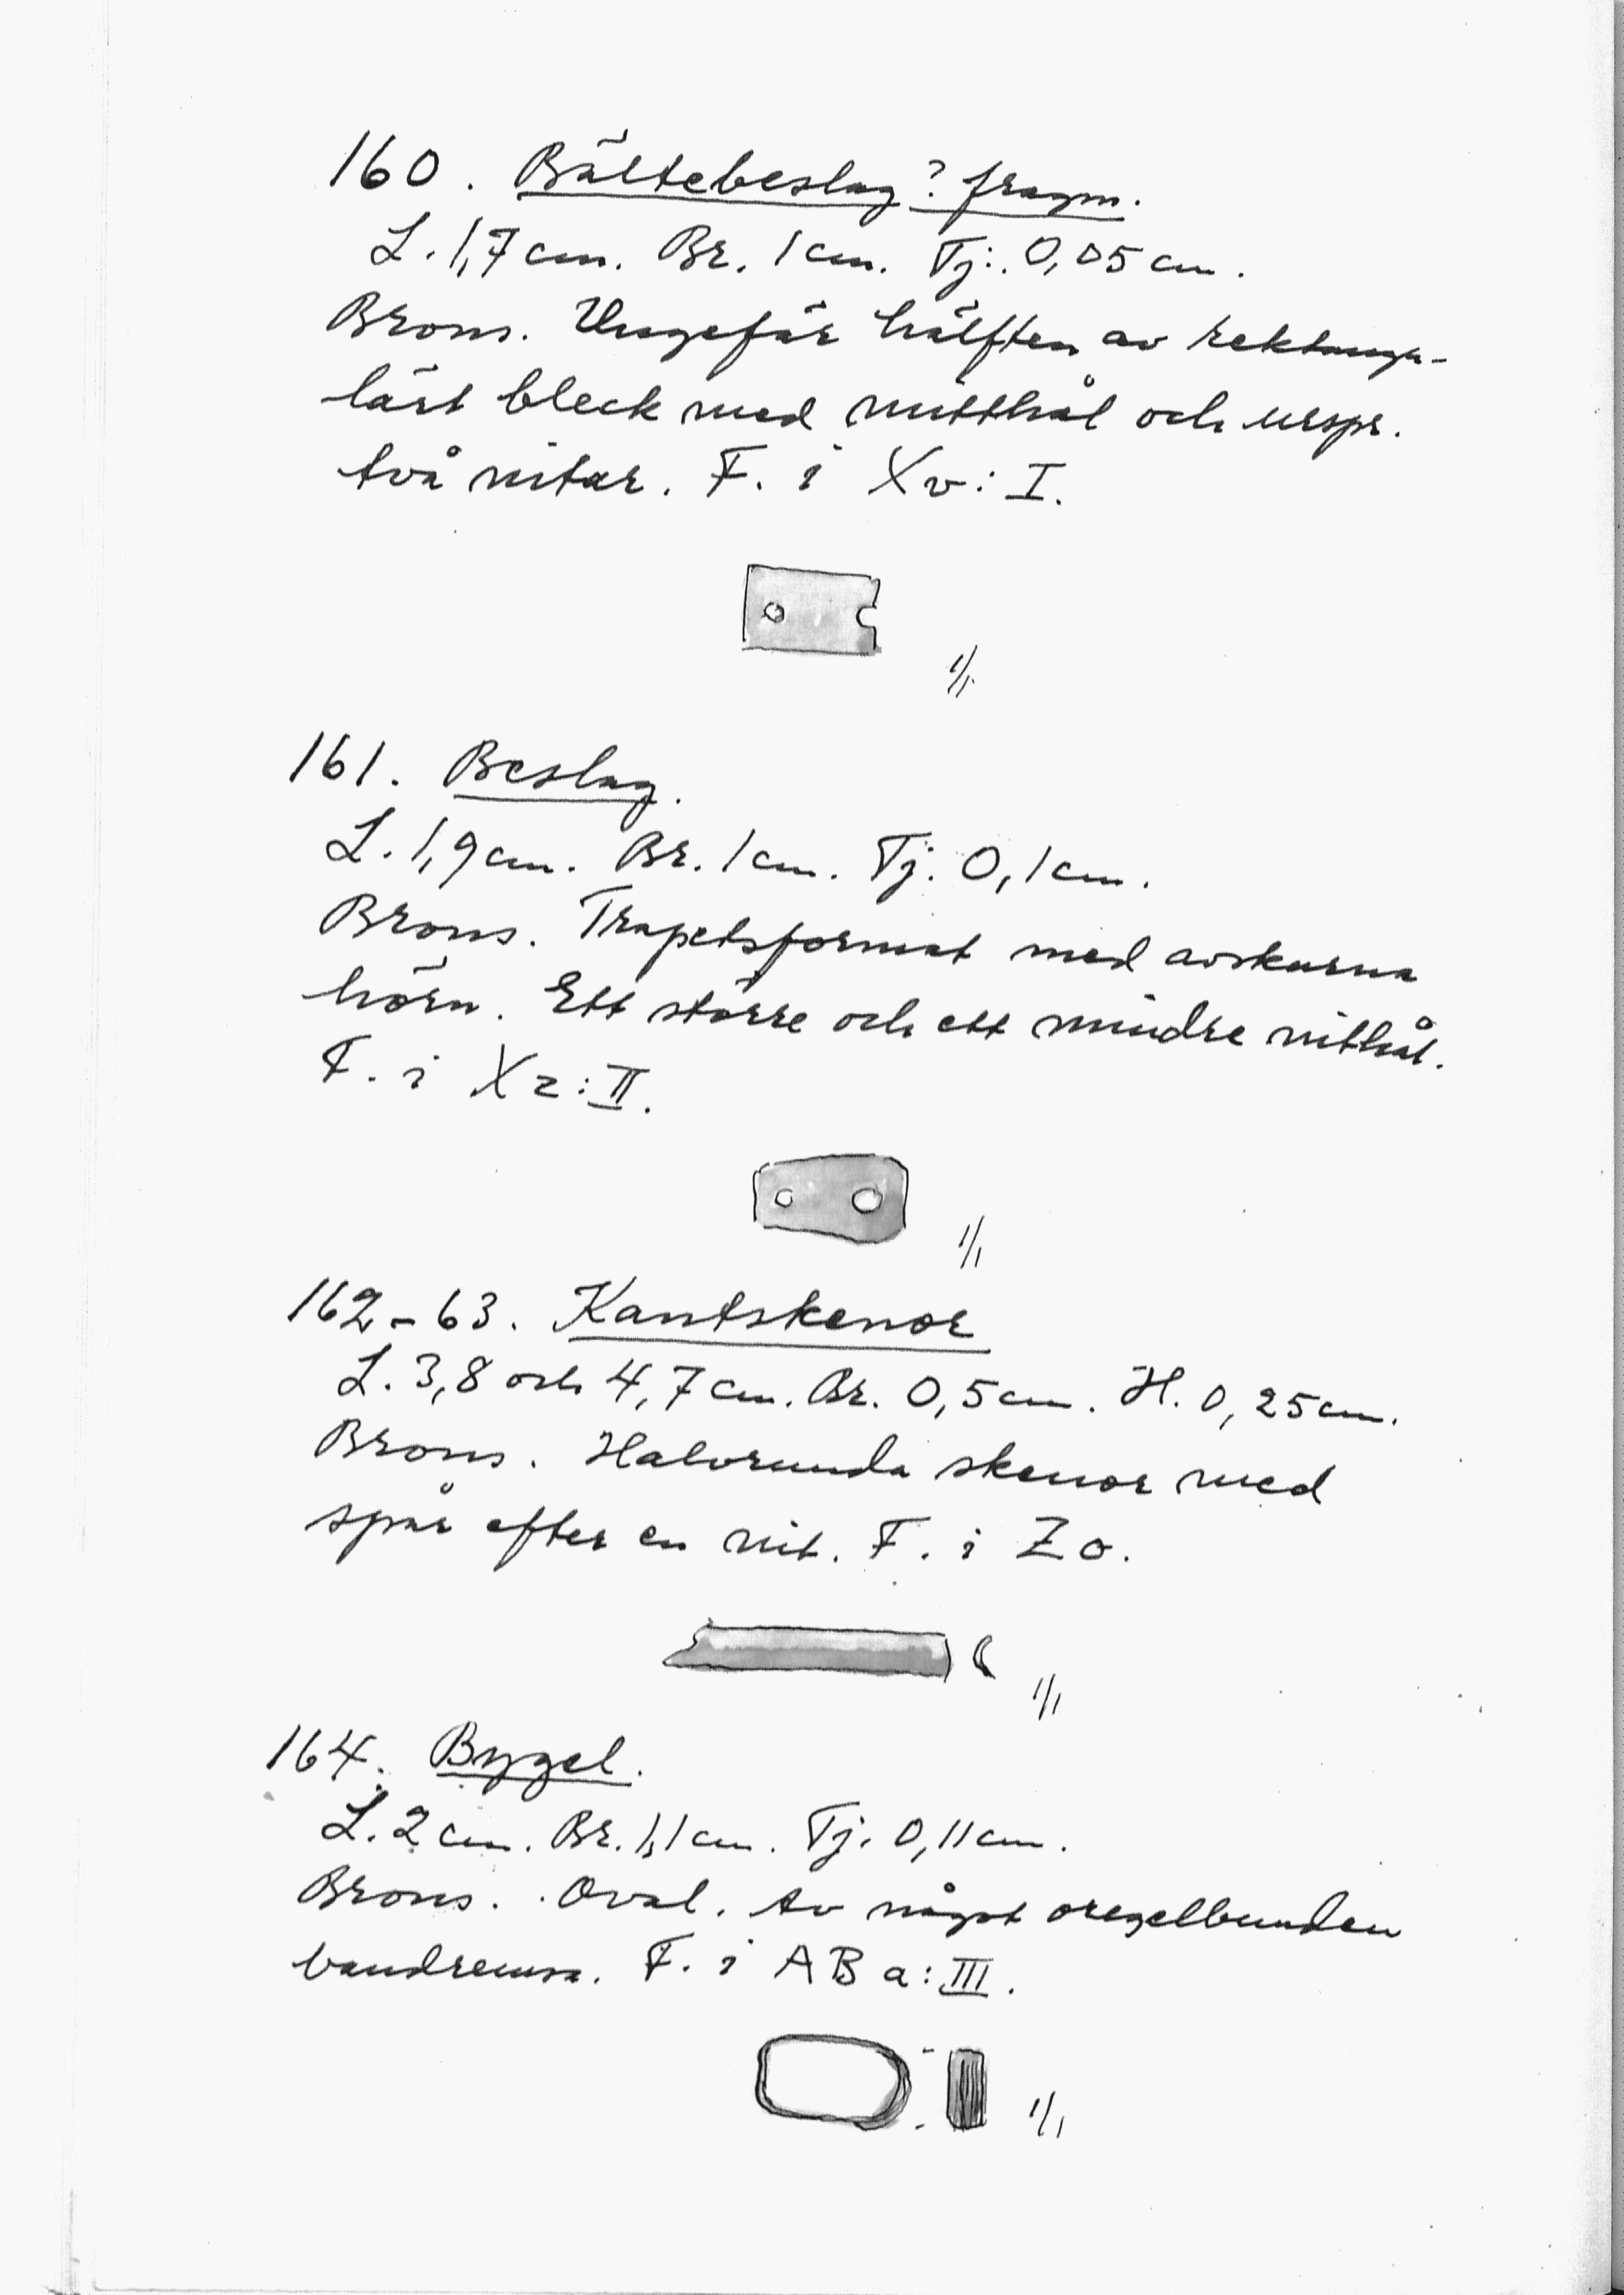 160. Bältebeslag? fragm.
L. 1,7 cm. Br. 1 cm. Tj. 0,05 cm.
Brons. Ungefär hälften av rektangu-
lärt bleck med mitthål och urspr.
två nitar. F. i Xv: I.
1/1
161. Beslag.
L. 1,9 cm. Br. 1 cm. Tj. 0,1 cm.
Brons. Trapetsformat med avskurna
hörn. Ett större och ett mindre nithål.
F. i Xz: II.
1/1
162-63. Kantskenor
L. 3,8 och 4,7 cm. Br. 0,5 cm. H. 0,25 cm.
Brons. Halvrunda skenor med
spår efter en nit. F. i Zo.
1/1
164. Bygel.
L. 2 cm. Br. 1,1 cm. Tj. 0,11 cm.
Brons. Oval. Av något oregelbunden
bandremsa. F. i ABa: III.
1/1